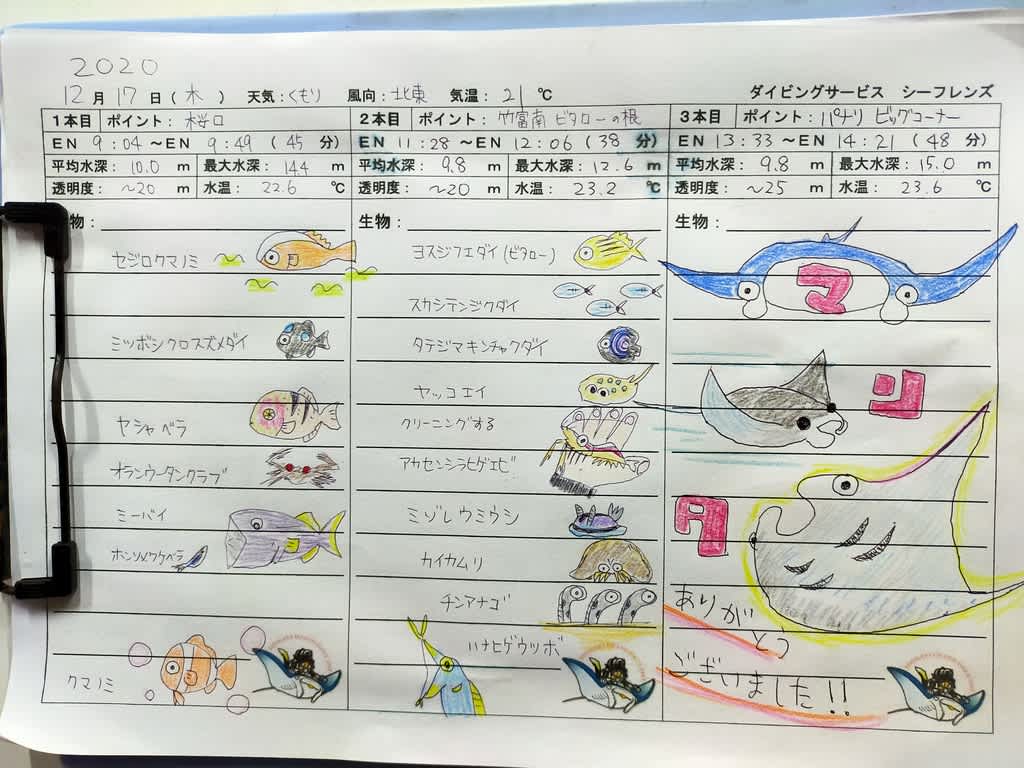 2020
12月 17日(木) 天気:くもり 風向:北東 気温:21℃ ダイビングサービス シーフレンズ
1本目 ポイント: 桜口
EN 9:04 ~EN 9:49 (45 分)
平均水深: 10.0 m 最大水深: 14.4 m
透明度: ~20 m 水温: 22.6 ℃
物:
セジロクマノミ
ミツボシクロスズメダイ
ヤシャベラ
オランウータンクラブ
ミーバイ
ホンソメワケベラ
クマノミ
2本目 ポイント: 竹富南 ビタローの根
EN 11:28 ~EN 12:06 (38 分)
平均水深: 9.8 m 最大水深: 12.6 m
透明度: ~20 m 水温: 23.2 ℃
生物:
ヨスジフエダイ(ビタロー)
スカシテンジクダイ
タテジマキンチャクダイ
ヤッコエイ
クリーニングする
アカセンシラヒゲエビ
ミゾレウミウシ
カイカムリ
チンアナゴ
ハナヒゲウツボ
3本目 ポイント: パナリ ビッグコーナー
EN 13:33 ~EN 14:21 (48 分)
平均水深: 9.8 m 最大水深: 15.0 m
透明度: ~25 m 水温: 23.6 ℃
生物:
マ
ン
タ
ありが
とう
ございました!!